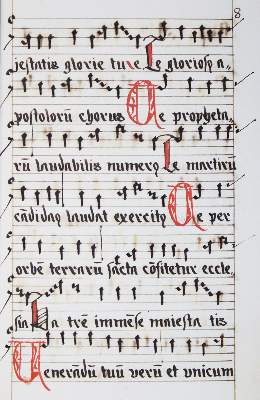 8
jestatis glorie tue Te gloriosꝰ a
postolorū chorus Te propheta
rū laudabilis numerꝰ Te martirū
cādidatꝰ laudat exercitꝰ Te per
orbē terrarū sācta cōfitetur eccle
sia Pa trē immēse maiesta tis
Venerādū tuū verū et vnicum